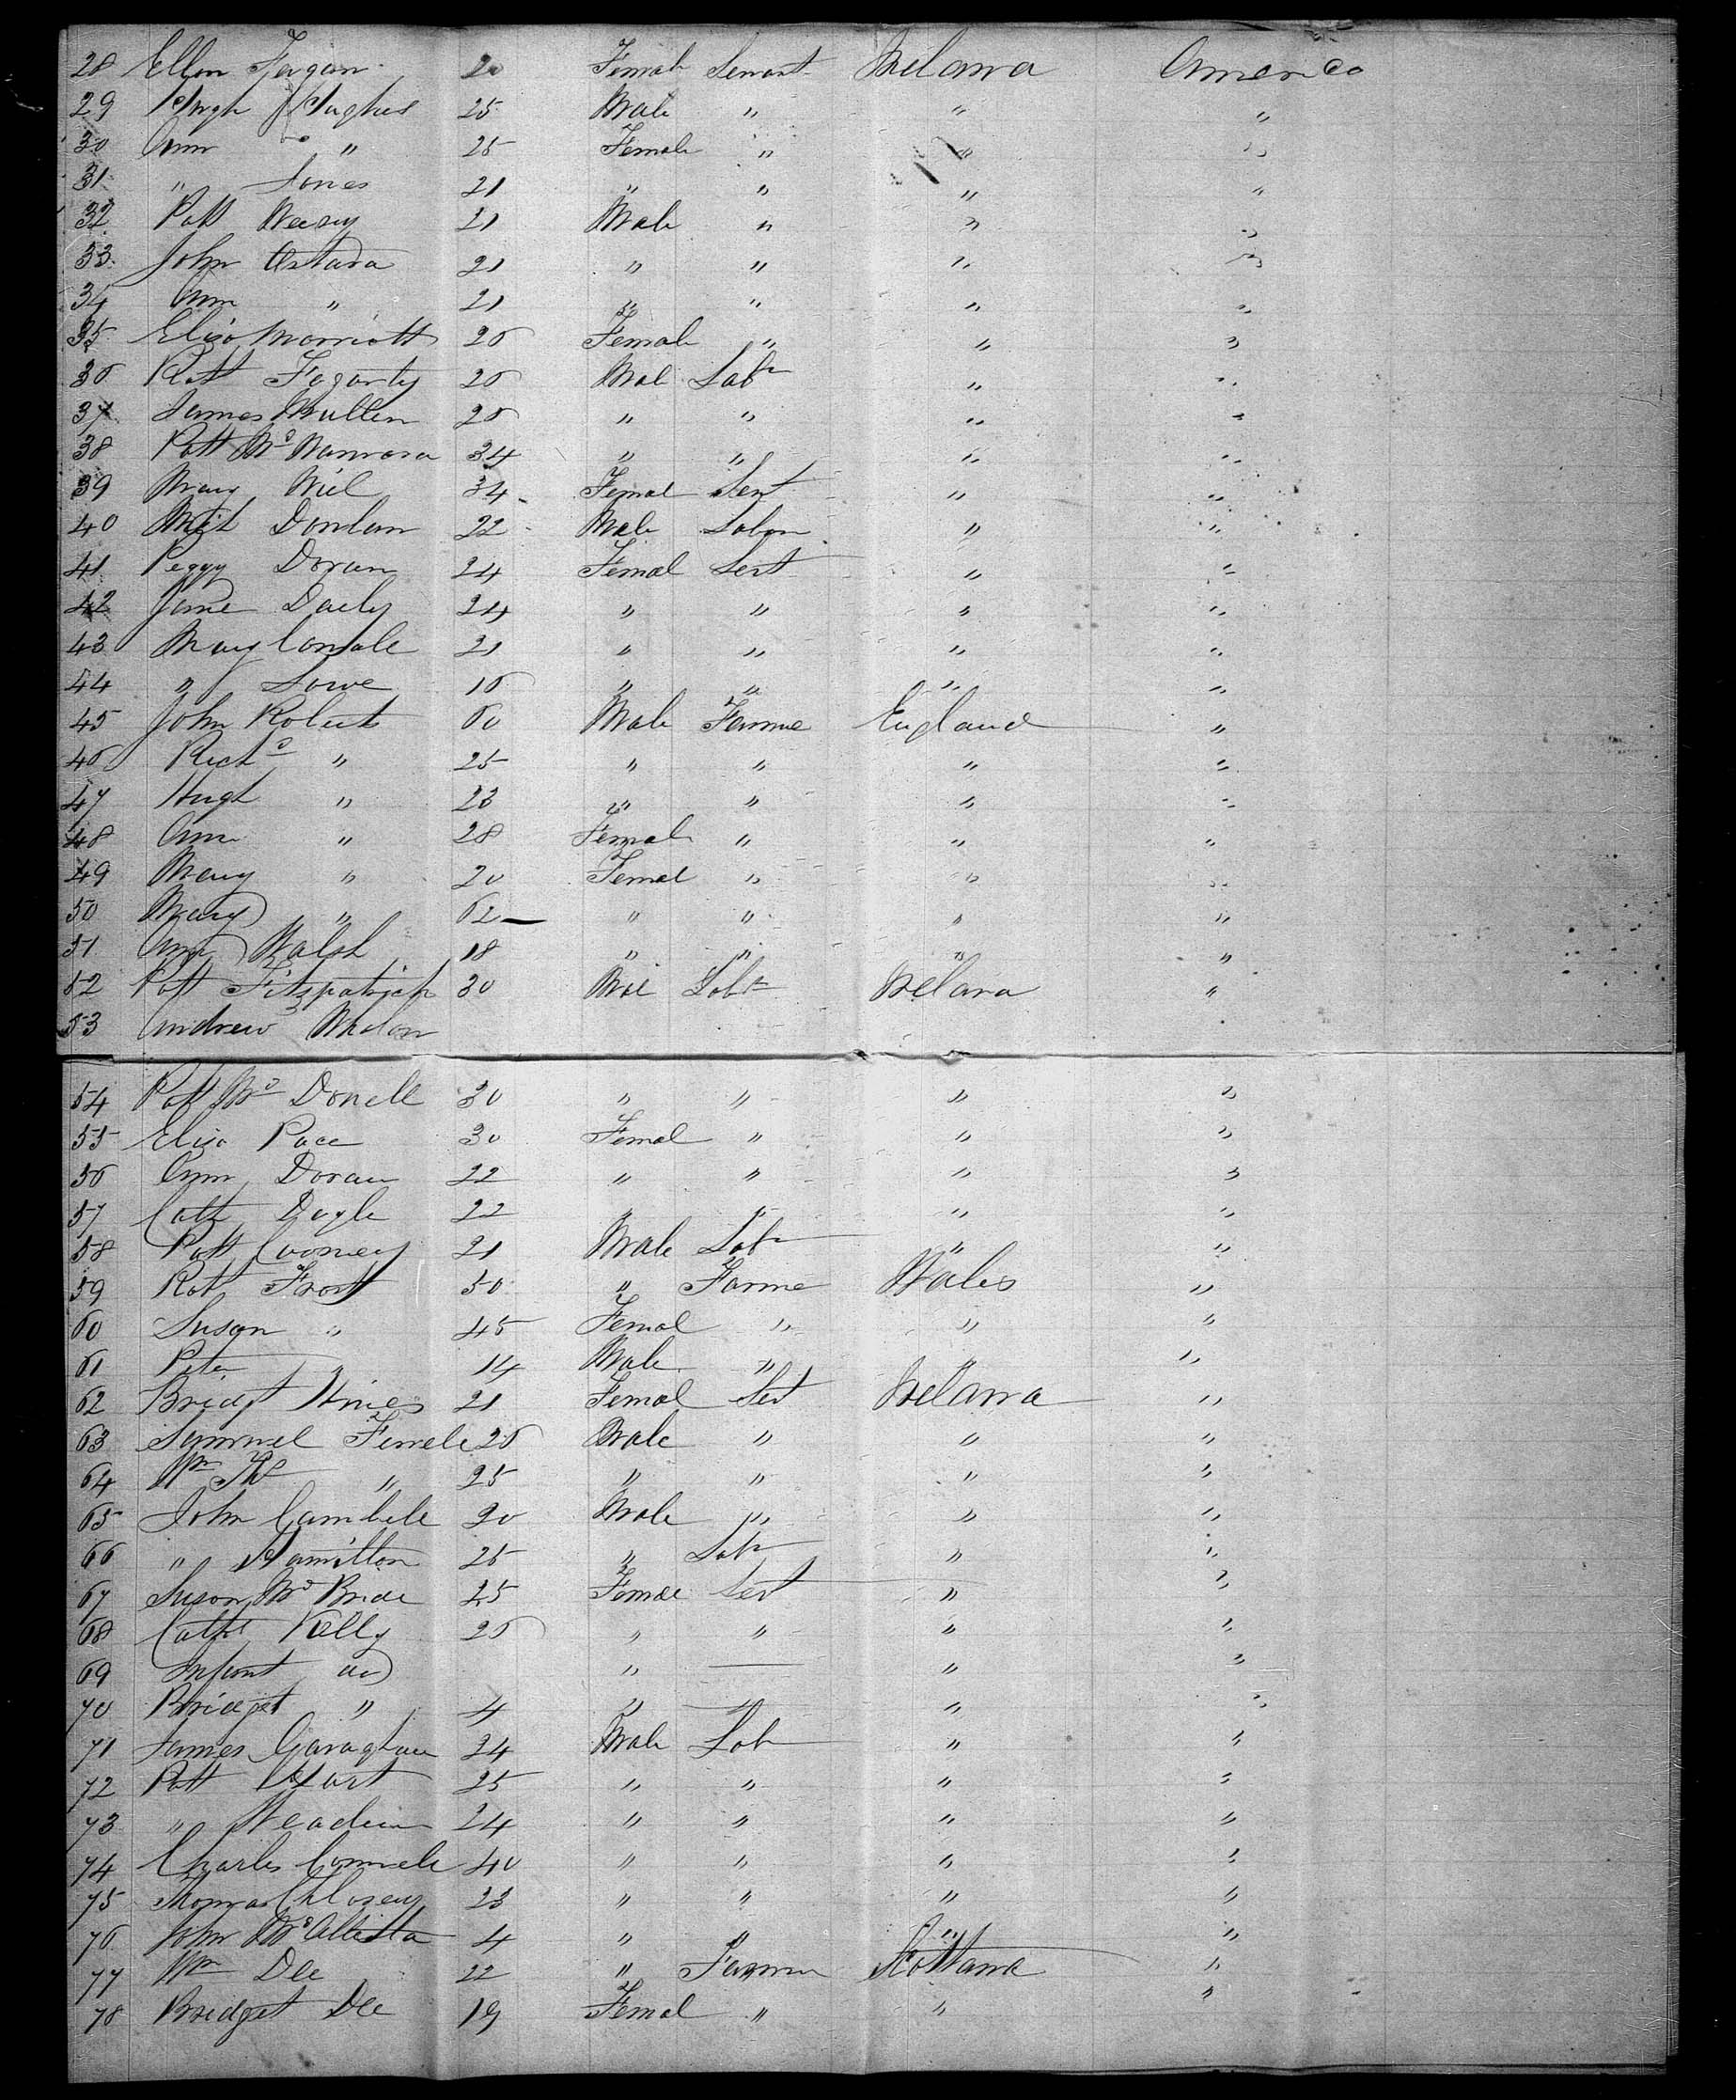 28 Ellen Fagan 20 Female Servant Ireland America
29 Hugh Hughes 25 Male " " "
30 Ann " 25 Female " " "
31 " Jones 21 " " " "
32 Patt 21 Male " " "
33 John 21 " " " "
34 Ann " 21 " " " "
35 Eliza Marriott 26 Female " " "
36 Fogarty 26 Mal Labr " "
37 James Mullen 26 " " " "
38 Patt Mc Namara 34 " " " "
39 Mary 34 Femal Sert " "
40 Donlan 22 Male Labor " "
41 Peggy Doran 24 Femal Sert " "
42 Jane Daely 24 " " " "
43 Mary 21 " " " "
44 " Lowe 16 " " " "
45 John Roberts 60 Male Farme England "
46 Richd " 25 " " " "
47 Hugh " 23 " " " "
48 Ann " 28 Female " " "
49 Mary " 20 Femal " " "
50 Mary " 62 " " " "
51 Ann Walsh 18 " " " "
52 Patt Fitzpatrick 30 Mal Labr Ireland "
53 Andrew
54 Patt Mc Donell 30 " " " "
55 Eliza Pace 30 Femal " " "
56 Ann Doran 22 " " " "
57 Cath Doyle 22 " " " "
58 Patt Cooney 21 Male Labr " "
59 Robt Frost 50 " Farme Wales "
60 Susan " 45 Femal " " "
61 Peter 14 Male " " "
62 Bridgt Hines 21 Femal Sert Ireland "
63 Samuel 26 Male " " "
64 Wm " 25 " " " "
65 John Cambell 20 Male " " "
66 " Hamilton 25 " Labr " "
67 Susan Mc Bride 25 Femal Sert " "
68 Cathe Kelly 26 " " " "
69 Infant do " — " "
70 Bridget " 4 " — " "
71 James Garaghan 24 Male Labr " "
72 Patt Hart 25 " " " "
73 " 24 " " " "
74 Charles 40 " " " "
75 Thomas 23 " " " "
76 John 4 " " " "
77 Wm Dee 22 " Farmer Scotland "
78 Bridget Dee 19 Femal " " "